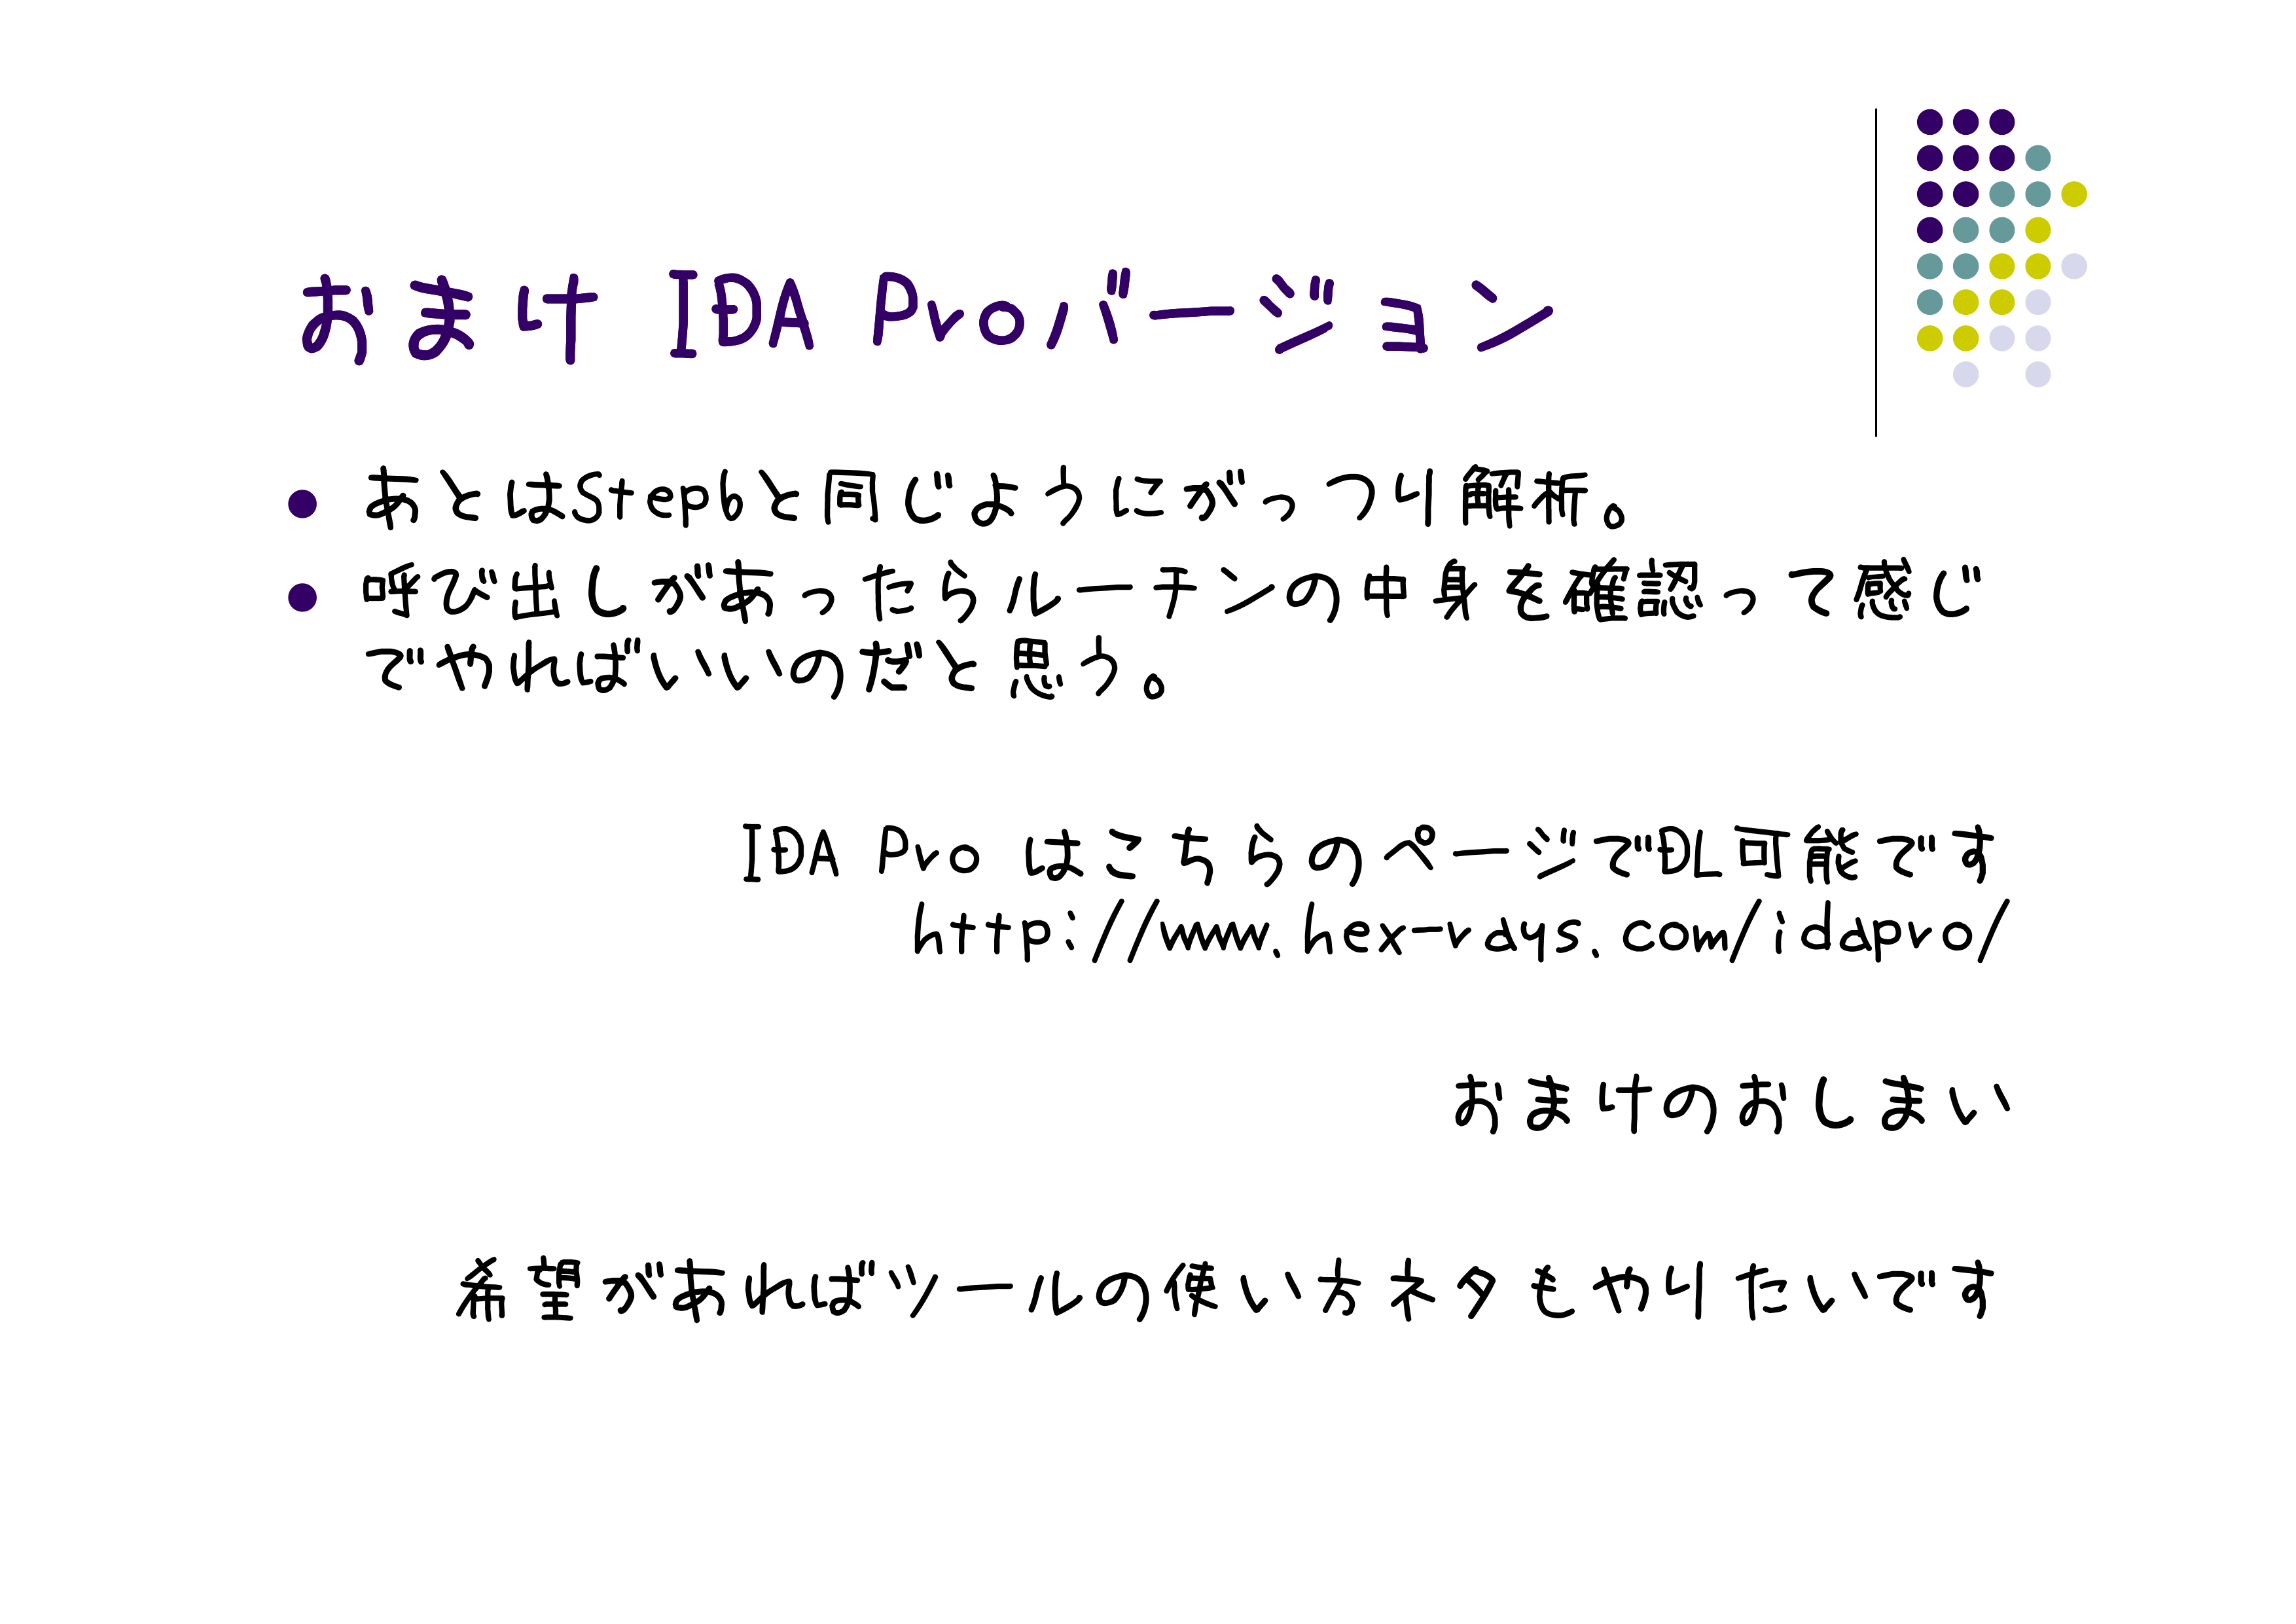 おまけ IDA Proバージョン
あとはStep6と同じようにがっつり解析。
呼び出しがあったらルーチンの中身を確認って感じ
でやればいいのだと思う。
IDA Pro はこちらのページでDL可能です
http://www.hex-rays.com/idapro/
おまけのおしまい
希望があればツールの使い方ネタもやりたいです